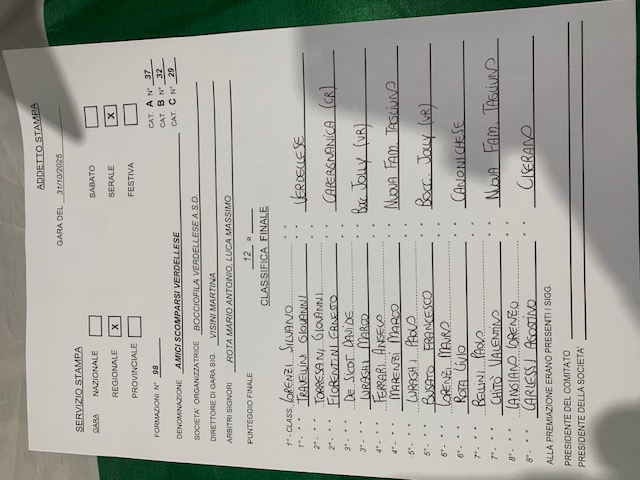 SERVIZIO STAMPA ADDETTO STAMPA
GARA DEL 31/10/2025
GARA NAZIONALE SABATO
REGIONALE X SERALE X
PROVINCIALE FESTIVA
FORMAZIONI N° 98 CAT. A N° 37
CAT. B N° 32
CAT. C N° 29
DENOMINAZIONE AMICI SCOMPARSI VERDELLESE
SOCIETA' ORGANIZZATRICE BOCCIOFILA VERDELLESE A.S.D.
DIRETTORE DI GARA SIG. VISINI MARTINA
ARBITRI SIGNORI ROTA MARIO ANTONIO, LUCA MASSIMO
PUNTEGGIO FINALE 12 a
CLASSIFICA FINALE
1°- CLASS. LORENZI SILVANO
1°- " " TRAVELLINI GIOVANNI " " VERDELLESE
2°- " " TORRESANI GIOVANNI " "
2°- " " FIORENTINI ERNESTO " " CAPERGNANICA (CR)
3°- " " DE SICOT DAVIDE " "
3°- " " LURAGHI MARCO " " BOCC. JOLLY (VR)
4°- " " FERRARI ANGELO " "
4°- " " MARENZI MARCO " " NUOVA FAM. TAGLIUNO
5°- " " LURAGHI PAOLO " "
5°- " " BOSATO FRANCESCO " " BOCC. JOLLY (VR)
6°- " " LORENZI MAURO " "
6°- " " ROTA LIVIO " " CANONICHESE
7°- " " BELLINI PAOLO " "
7°- " " CHITÒ VALENTINO " " NUOVA FAM. TAGLIUNO
8°- " " LORENZO " "
8°- " " CARLESSI AGOSTINO " " CISERANO
ALLA PREMIAZIONE ERANO PRESENTI I SIGG.
PRESIDENTE DEL COMITATO
PRESIDENTE DELLA SOCIETA'